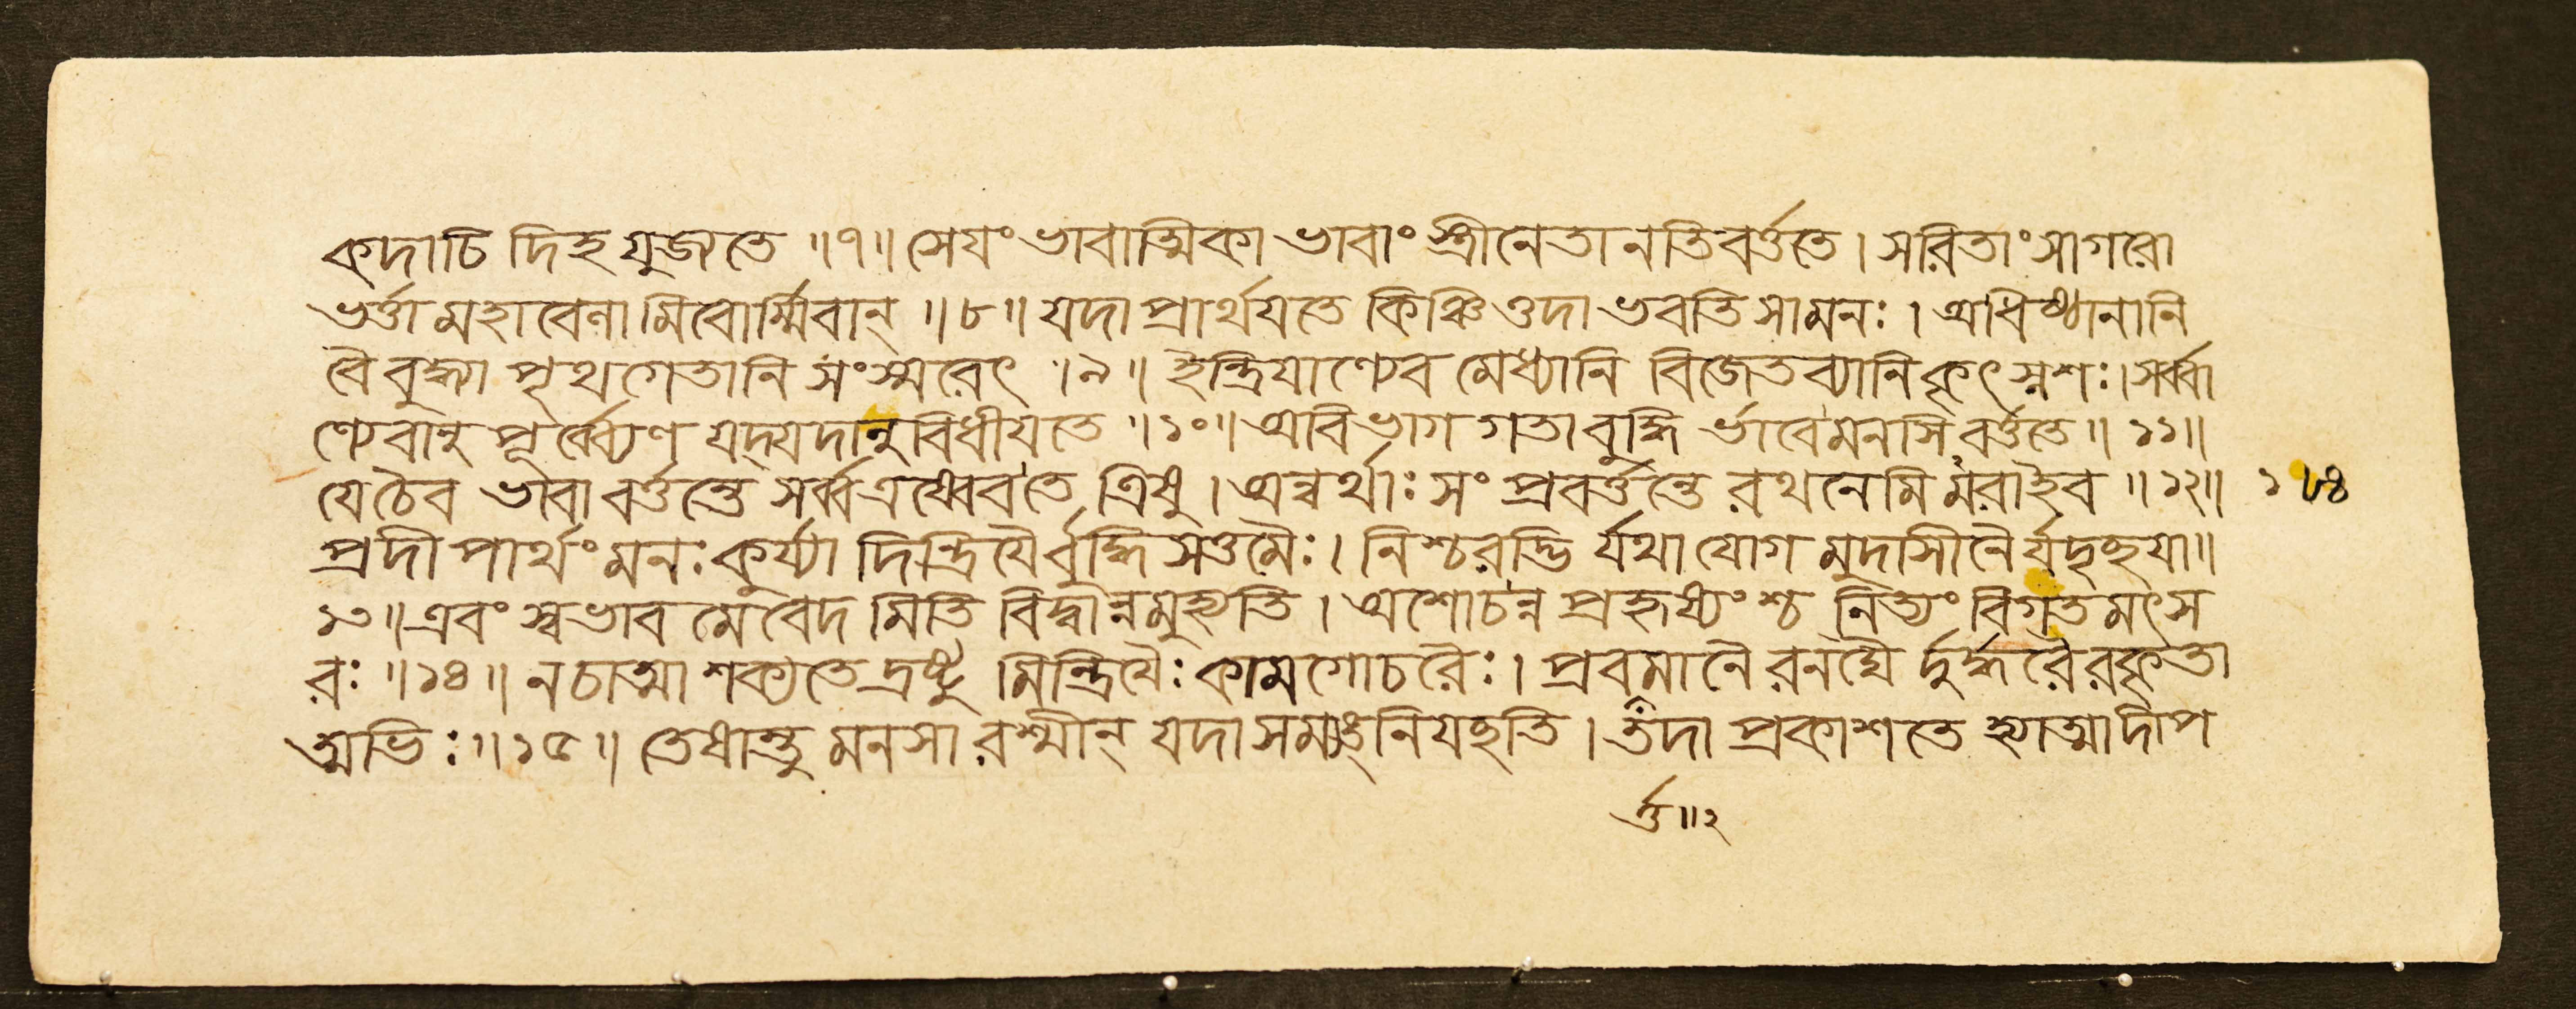 কদাচি দিহ যুজ্যতে ॥৭॥ সেয়ং ভাবাত্মিকা ভাবাং স্ত্রীনেতানতিবর্ত্ততে । সরিতাং সাগরো
ভর্ত্তা মহাবেলা মিবোর্ম্মিবান্ ॥৮॥ যদা প্রার্থয়তে কিঞ্চিত্তদা ভবতি সা মনঃ । অধিষ্ঠানানি
বৈ বুদ্ধ্যা পৃথগেতানি সংস্মরেৎ ॥৯॥ ইন্দ্রিয়াণ্যেব মেধ্যানি বিজেতব্যানি কৃৎস্নশঃ । সর্ব্বা
ণ্যেবানু পূর্ব্ব্যেণ যদ্যদানু বিধীয়তে ॥১০॥ অবিভাগ গতা বুদ্ধি র্ভাবে মনসি বর্ত্ততে ॥১১॥
যে চৈব ভাবা বর্ত্তন্তে সর্ব্ব এষ্বেবতে ত্রিষু । অন্বর্থাঃ সং প্রবর্ত্তন্তে রথনেমি মরাইব ॥১২॥ ১৮৪
প্রদীপার্থং মনঃ কুর্য্যা দিন্দ্রিয়ৈর্বুদ্ধি সত্তমৈঃ । নিশ্চরদ্ভি র্যথাযোগ মুদাসীনৈ র্যদৃচ্ছয়া ॥
১৩॥ এবং স্বভাব মেবেদ মিতি বিদ্বান্নমুহ্যতি । অশোচন্ন প্রহৃষ্যংশ্চ নিত্যং বিগত মৎস
রঃ ॥১৪॥ ন চাত্মা শক্যতে দ্রষ্টু মিন্দ্রিয়ৈঃ কামগোচরৈঃ । প্রবর্তমানৈ রনঘৈ র্দুর্দ্ধরৈরকৃতা
ত্মভিঃ ॥১৫॥ তেষান্তু মনসা রশ্মীন্ যদা সম্যঙ্ নিযচ্ছতি । তদা প্রকাশতে হ্যাত্মা দীপ
র্ত্ত ॥২